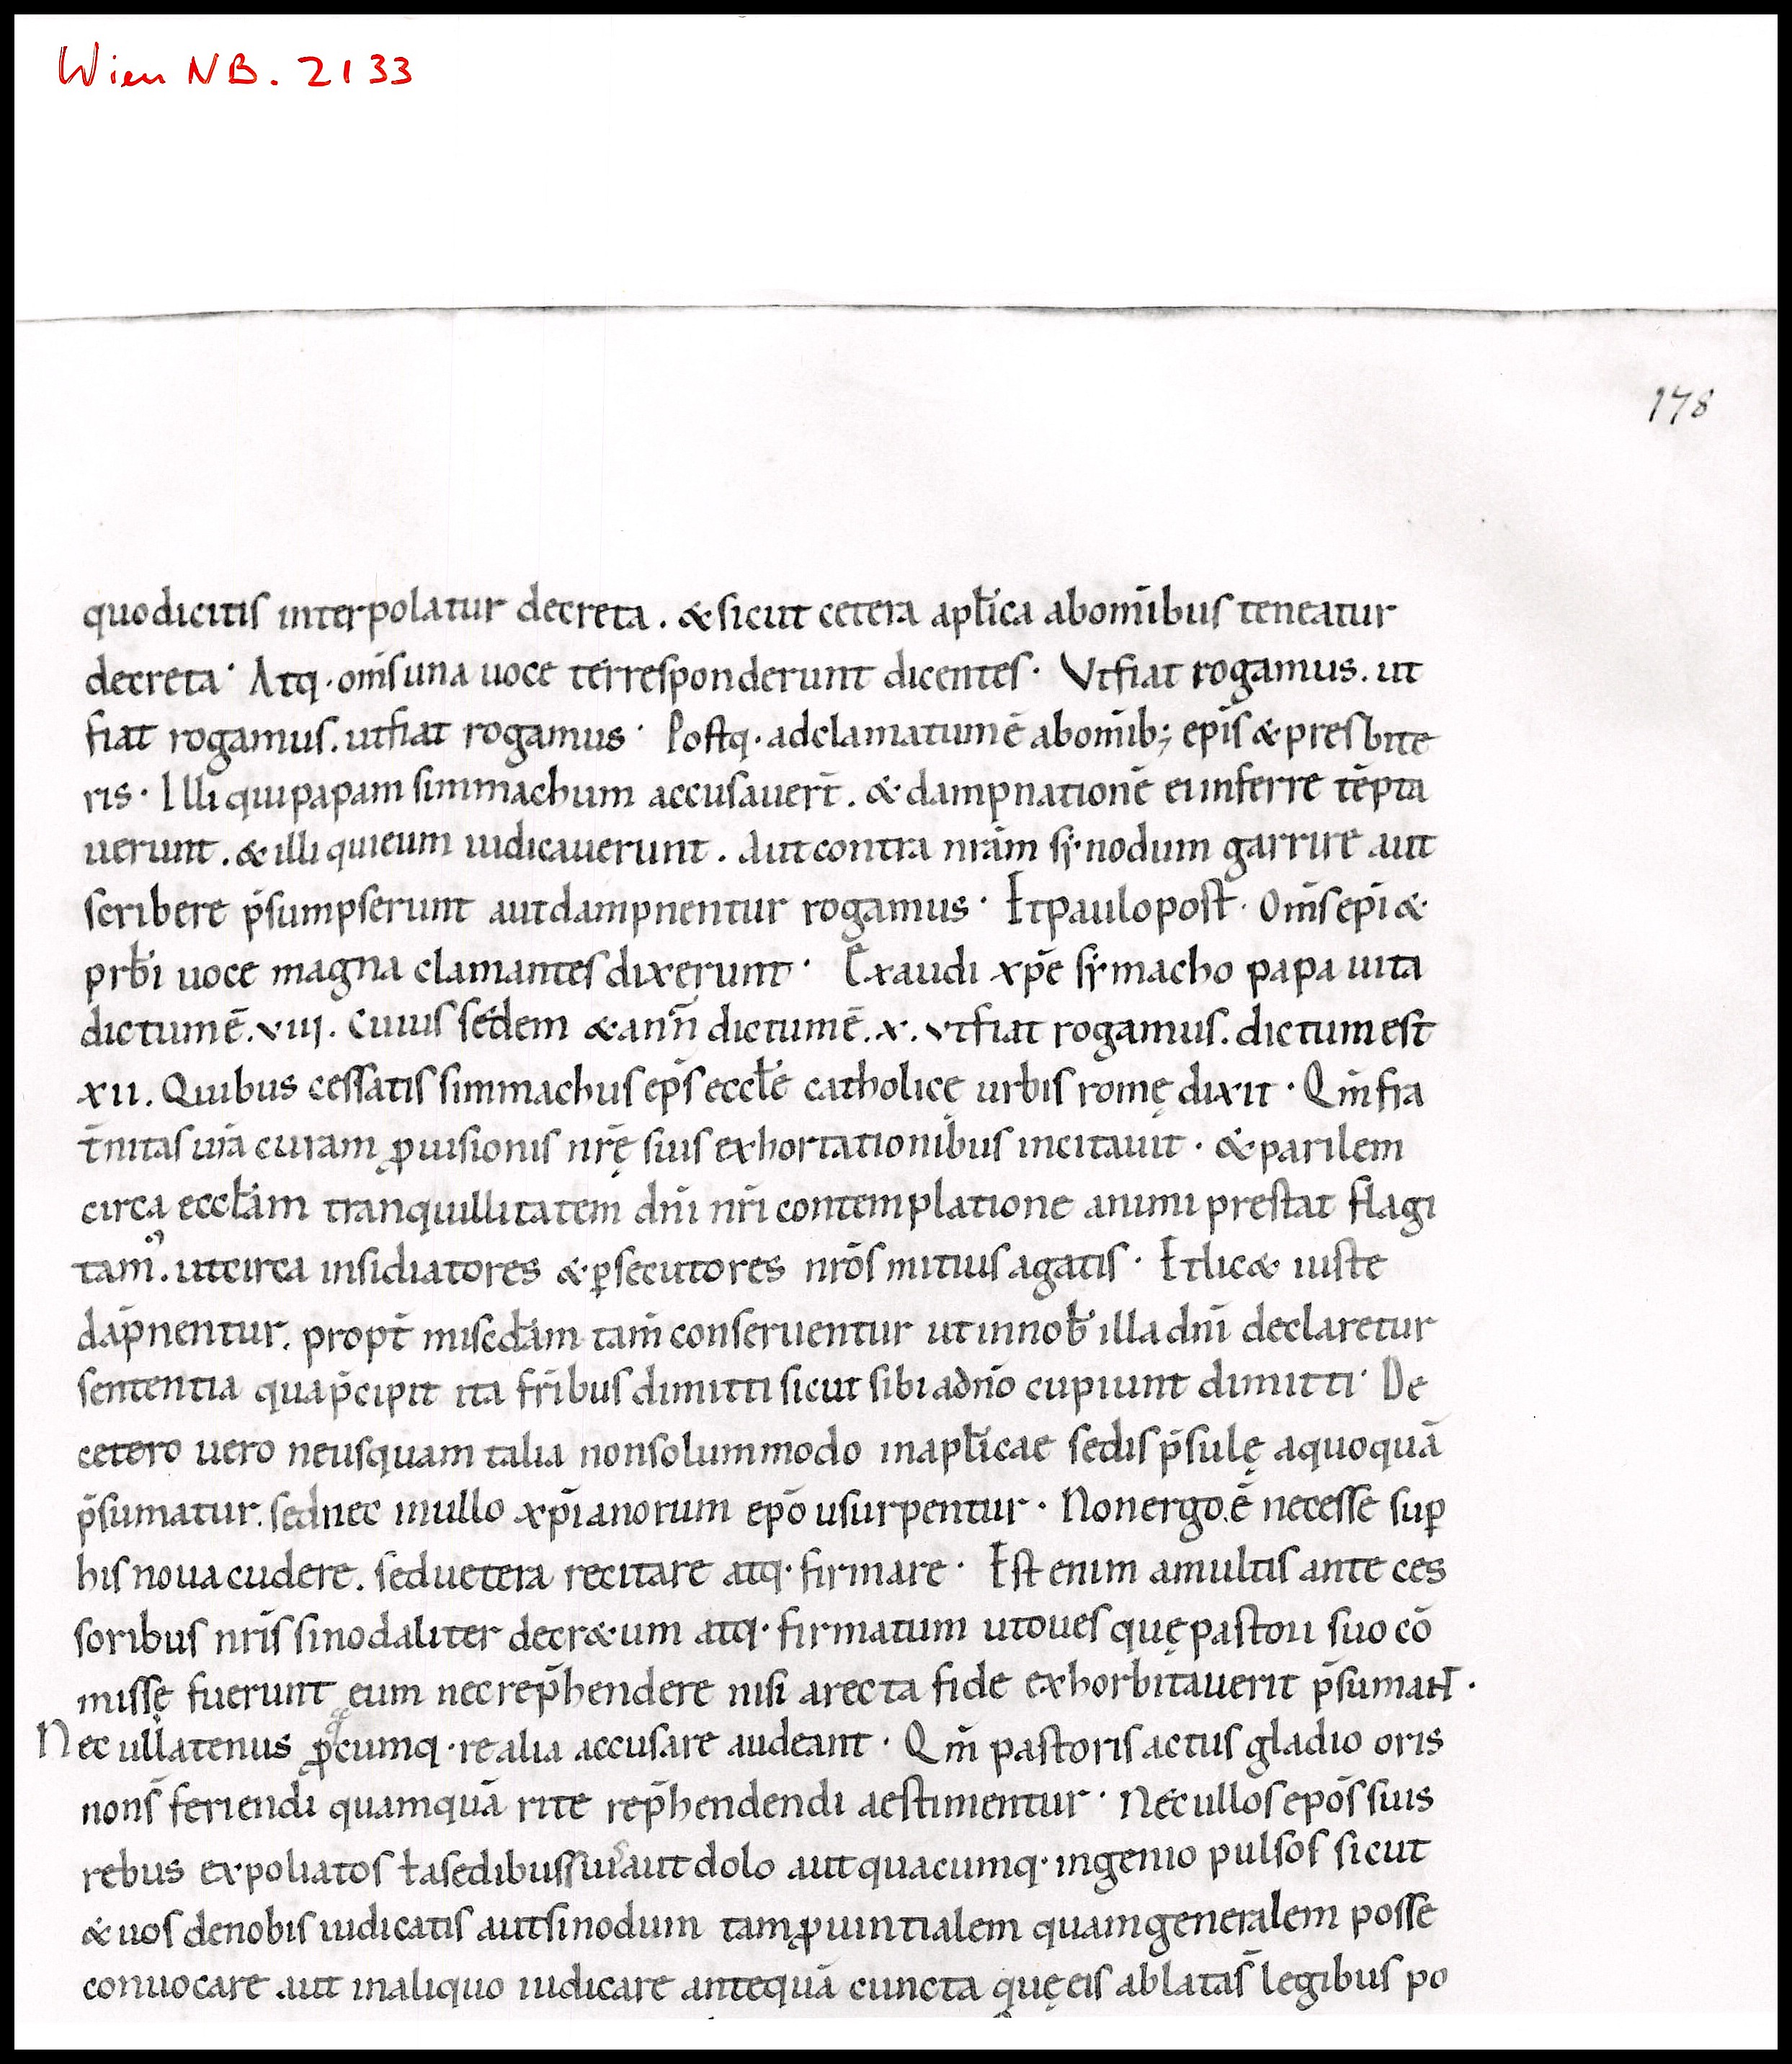 Wien NB. 2133
178
quodicitis interpolatur decreta. & sicut cetera apl̄ica abom̄ibus teneatur
decreta· Atq· om̄s una uoce terresponderunt dicentes· Vtfiat rogamus. ut
fiat rogamus. utfiat rogamus· Postq· adclamatumē abom̄ib; ep̄is & presbite
ris· Illi quipapam simmachum accusauer̄t. & dampnationē eiinferre tēpta
uerunt. & illi quieum iudicauerunt. Aut contra nr̄am sẏnodum garrire aut
scribere p̄sumpserunt autdampnentur rogamus· Etpaulopost̄· Om̄s ep̄i &
prb̄i uoce magna clamantes dixerunt· Exaudi xp̄e sẏmacho papa uita
dictumē. viii. Cuius sedem & ann̄ dictumē. x. vtfiat rogamus. dictumest
xii. Quibus cessatis simmachus ep̄s eccl̄e catholicę urbis romę dixit· Qm̄ fr̄a
t̄nitas ur̄a curam ꝓuisionis nr̄ę suis exhortationibus incitauit· & parilem
circa eccl̄am tranquillitatem dn̄i nr̄i contemplatione animi prestat flagi
tam᾽. utcirca insidiatores & ꝑsecutores nr̄os mitius agatis· Etlic& iuste
dāpnentur. propt̄ miscd̄am tam̄ conseruentur ut innob̄ illa dn̄i declaretur
sententia qua p̄cipit ita fr̄ibus dimitti sicut sibi adn̄o cupiunt dimitti· De
cetero uero neusquam talia nonsolummodo inapl̄icae sedis p̄sulę aquoquā
p̄sumatur. sednec inullo xp̄ianorum ep̄o usurpentur· Nonergo.ē necesse suꝑ
his noua cudere. seduetera recitare atq· firmare· Est enim amultis ante ces
soribus nr̄is sinodaliter decr&um atq· firmatum utoues quę pastori suo cō
missę fuerunt eum necrep̄hendere nisi arecta fide exhorbitauerit p̄sumant·
Nec ullatenus ꝓcumq· re alia accusare audeant· Qm̄ pastoris actus gladio oris
nons̄ feriendi quamquā rite rep̄hendendi aestimentur· Nec ullos ep̄os suis
rebus expoliatos ł asedibus suis aut dolo aut quacumq· ingenio pulsos sicut
& uos denobis iudicatis autsinodum tamꝓuintialem quamgeneralem posse
conuocare. aut inaliquo iudicare antequā cuncta quę eis ablatas̄ legibus po